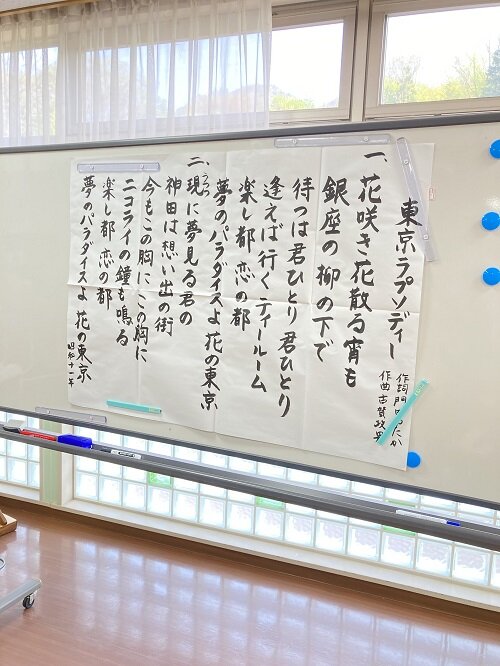 東京ラプソディー
作詞 門田ゆたか
作曲 古賀政男
一、花咲き花散る宵も
銀座の柳の下で
待つは君ひとり 君ひとり
逢えば行く ティールーム
楽し都 恋の都
夢のパラダイスよ 花の東京
二、現に夢見る君の
うつつ
神田は想い出の街
今もこの胸に この胸に
ニコライの鐘も鳴る
楽し都 恋の都
夢のパラダイスよ 花の東京
昭和十一年